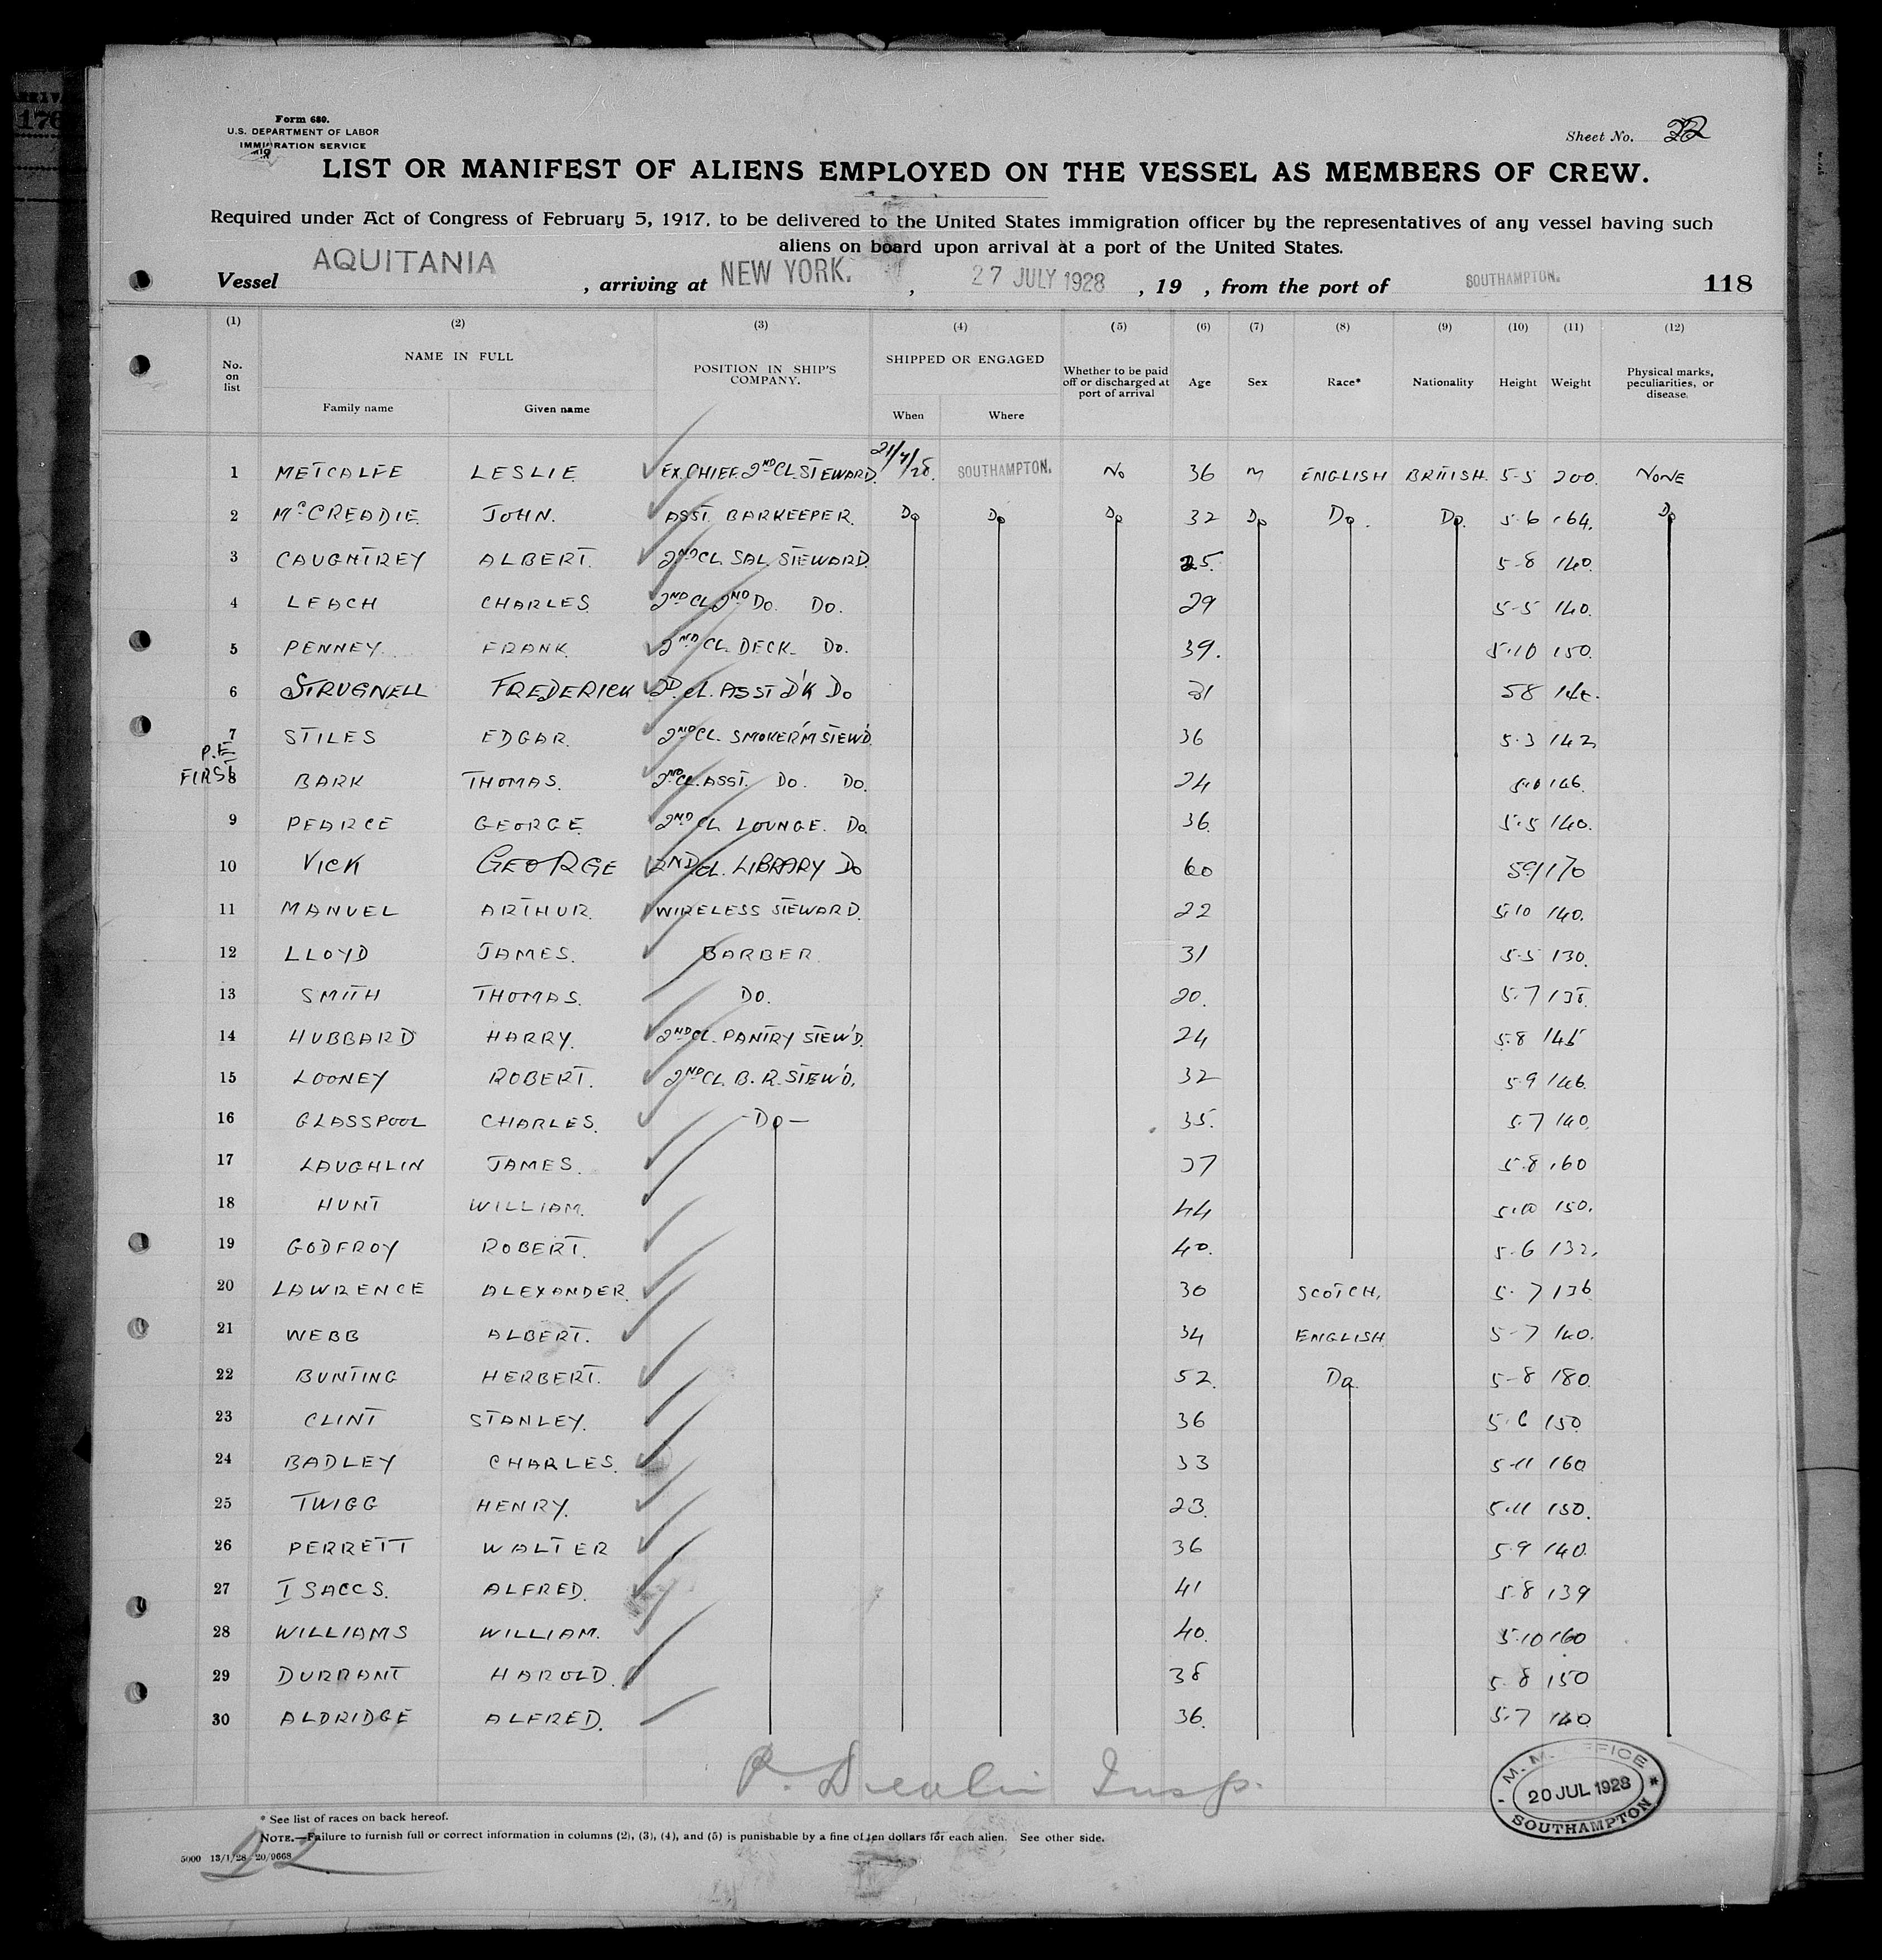 Form 680.
U.S. DEPARTMENT OF LABOR
IMMIGRATION SERVICE
Sheet No. 22
LIST OR MANIFEST OF ALIENS EMPLOYED ON THE VESSEL AS MEMBERS OF CREW.
Required under Act of Congress of February 5, 1917, to be delivered to the United States immigration officer by the representatives of any vessel having such
aliens on board upon arrival at a port of the United States.
Vessel AQUITANIA , arriving at NEW YORK. , 27 JULY 1928 , 19 , from the port of SOUTHAMPTON. 118
(1) (2) (3) (4) (5) (6) (7) (8) (9) (10) (11) (12)
No. on list NAME IN FULL Family name Given name POSITION IN SHIP'S COMPANY. SHIPPED OR ENGAGED When Where Whether to be paid off or discharged at port of arrival Age Sex Race* Nationality Height Weight Physical marks, peculiarities, or disease.
1 METCALFE LESLIE EX.CHIEF.2ND CL.STEWARD. 21/7/28. SOUTHAMPTON. No 36 M ENGLISH BRITISH. 5-5 200. NONE
2 McCREADIE JOHN. ASST. BARKEEPER. Do Do Do 32 Do Do. Do. 5.6 164. Do
3 CAUGHTREY ALBERT. 2ND CL. SAL. STEWARD. 25. 5-8 140.
4 LEACH CHARLES 2ND CL. 2ND Do. Do. 29 5-5 140.
5 PENNEY. FRANK. 2ND CL. DECK. Do. 39. 5.10 150.
6 STRUGNELL FREDERICK 2D. CL. ASST D'K Do 21 58
7 STILES EDGAR. 2ND CL. SMOKER'M STEW'D. 36 5.3 142
P.E
FIRST
8 BARK THOMAS. 2ND CL. ASST. Do. Do. 24 146.
9 PEARCE GEORGE 2ND CL. LOUNGE. Do. 36. 5.5 140.
10 VICK GEORGE 2ND CL. LIBRARY Do 60 5.9 170
11 MANUEL ARTHUR. WIRELESS STEWARD. 22 5.10 140.
12 LLOYD JAMES. BARBER. 31 5-5 130.
13 SMITH THOMAS. DO. 20. 5.7 138.
14 HUBBARD HARRY. 2ND CL. PANTRY STEW'D. 24 5.8 145
15 LOONEY ROBERT. 2ND CL. B.R. STEW'D. 32 5.9 146.
16 GLASSPOOL CHARLES. -Do- 35. 5.7 140.
17 LAUGHLIN JAMES. 37 5.8 160
18 HUNT WILLIAM. 44 5.10 150.
19 GODFROY ROBERT. 40. 5.6 132.
20 LAWRENCE ALEXANDER. 30 SCOTCH. 5.7 136
21 WEBB ALBERT. 34 ENGLISH 5-7 140.
22 BUNTING HERBERT. 52. Do. 5-8 180.
23 CLINT STANLEY. 36 5.6 150
24 BADLEY CHARLES. 33 5-11 160
25 TWIGG HENRY. 23. 5.11 150.
26 PERRETT WALTER 36 5.9 140.
27 ISACCS. ALFRED. 41 5.8 139
28 WILLIAMS WILLIAM. 40. 5.10 160
29 DURRANT HAROLD. 38 5.8 150
30 ALDRIDGE ALFRED. 36. 5.7 140.
Insp.
M. M. OFFICE
20 JUL 1928
SOUTHAMPTON
* See list of races on back hereof.
NOTE.—Failure to furnish full or correct information in columns (2), (3), (4), and (5) is punishable by a fine of ten dollars for each alien. See other side.
5000 13/1/28 20/9668
22